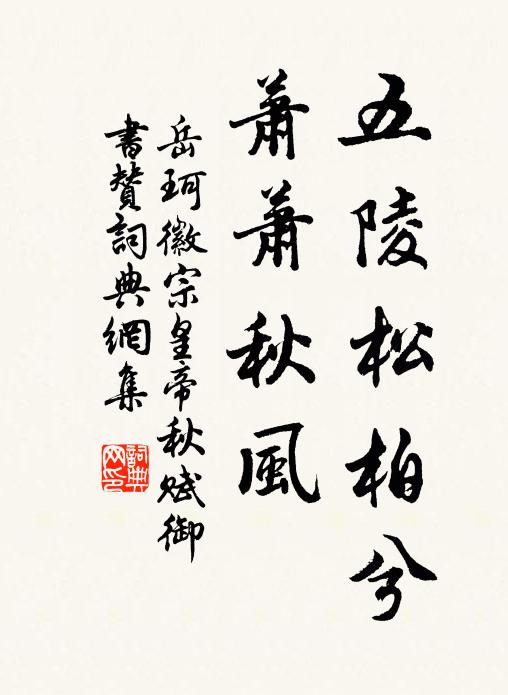 五陵松柏兮
蕭蕭秋風
岳珂徽宗皇帝秋賦御
書贊詞典網集
詞典
网印